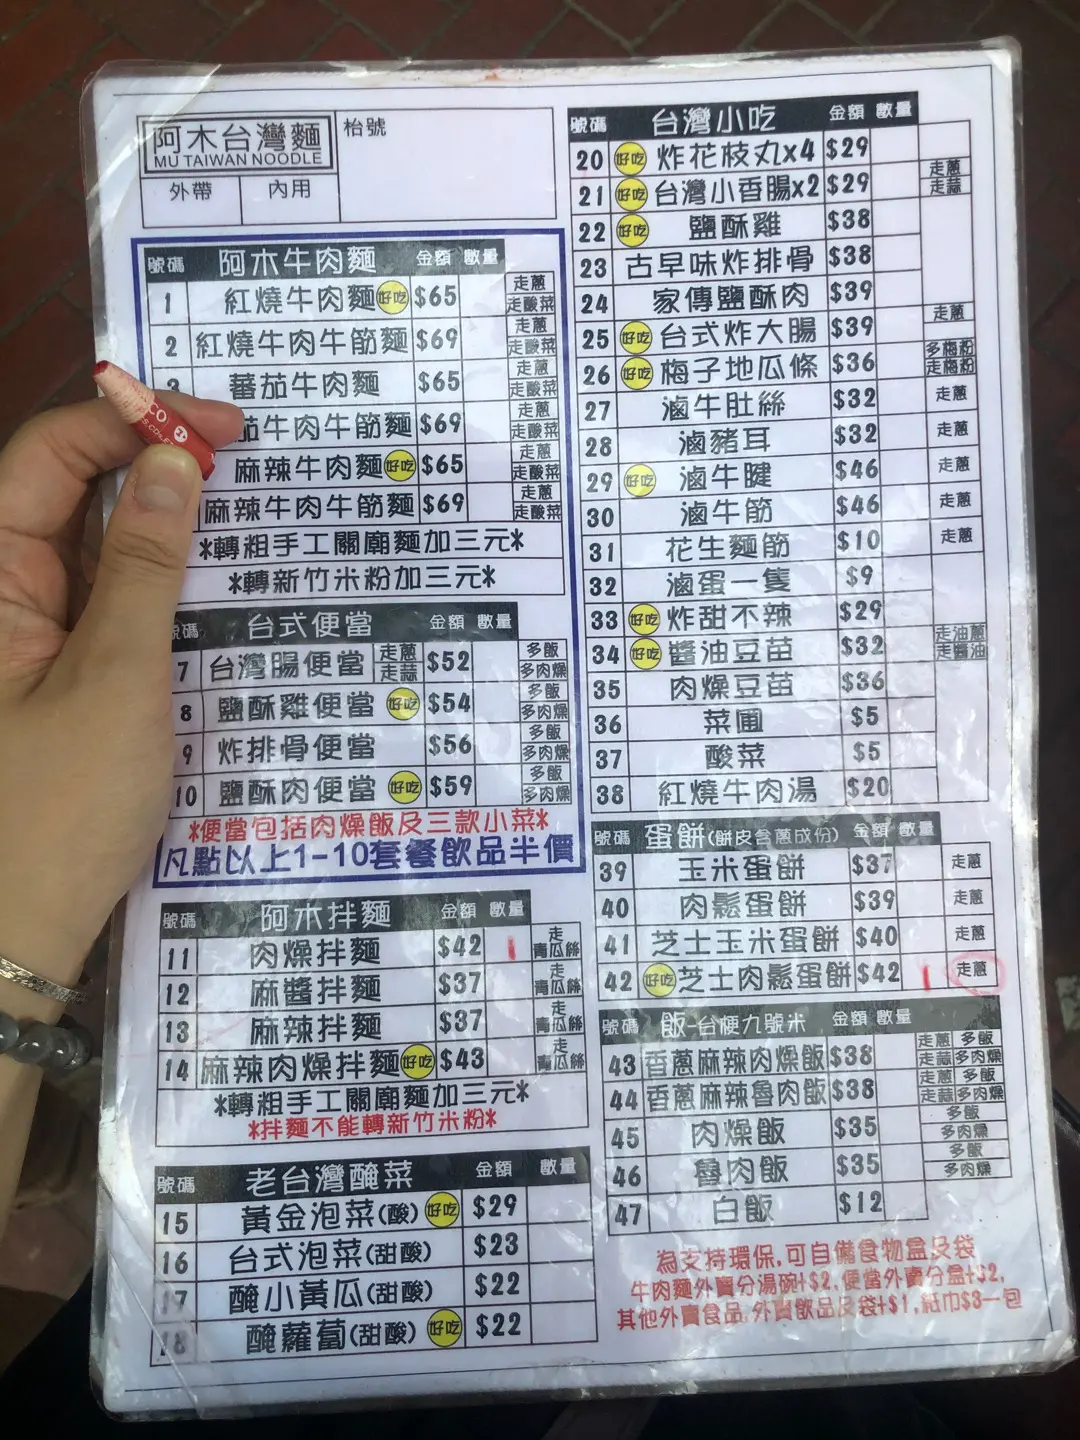 阿木台灣麵
MU TAIWAN NOODLE
枱號
外帶 內用
號碼 阿木牛肉麵 金額 數量
1 紅燒牛肉麵 好吃 $65 走蔥 走酸菜
2 紅燒牛肉牛筋麵 $69 走蔥 走酸菜
3 蕃茄牛肉麵 $65 走蔥 走酸菜
茄牛肉牛筋麵 $69 走蔥 走酸菜
麻辣牛肉麵 好吃 $65 走蔥 走酸菜
麻辣牛肉牛筋麵 $69 走蔥 走酸菜
*轉粗手工關廟麵加三元*
*轉新竹米粉加三元*
號碼 台式便當 金額 數量
7 台灣腸便當 走蔥 走蒜 $52 多飯 多肉燥
8 鹽酥雞便當 好吃 $54 多飯 多肉燥
9 炸排骨便當 $56 多飯 多肉燥
10 鹽酥肉便當 好吃 $59 多飯 多肉燥
*便當包括肉燥飯及三款小菜*
凡點以上1-10套餐飲品半價
號碼 阿木拌麵 金額 數量
11 肉燥拌麵 $42 1 走青瓜絲
12 麻醬拌麵 $37 走青瓜絲
13 麻辣拌麵 $37 走青瓜絲
14 麻辣肉燥拌麵 好吃 $43 走青瓜絲
*轉粗手工關廟麵加三元*
*拌麵不能轉新竹米粉*
號碼 老台灣醃菜 金額 數量
15 黃金泡菜(酸) 好吃 $29
16 台式泡菜(甜酸) $23
17 醃小黃瓜(甜酸) $22
18 醃蘿蔔(甜酸) 好吃 $22
號碼 台灣小吃 金額 數量
20 好吃 炸花枝丸x4 $29
21 好吃 台灣小香腸x2 $29 走蔥 走蒜
22 好吃 鹽酥雞 $38
23 古早味炸排骨 $38
24 家傳鹽酥肉 $39
25 好吃 台式炸大腸 $39 走蔥
26 好吃 梅子地瓜條 $36 多梅粉 走梅粉
27 滷牛肚絲 $32 走蔥
28 滷豬耳 $32 走蔥
29 好吃 滷牛腱 $46 走蔥
30 滷牛筋 $46 走蔥
31 花生麵筋 $10 走蔥
32 滷蛋一隻 $9
33 好吃 炸甜不辣 $29
34 好吃 醬油豆苗 $32 走油蔥 走醬油
35 肉燥豆苗 $36
36 菜圃 $5
37 酸菜 $5
38 紅燒牛肉湯 $20
號碼 蛋餅(餅皮含蔥成份) 金額 數量
39 玉米蛋餅 $37 走蔥
40 肉鬆蛋餅 $39 走蔥
41 芝士玉米蛋餅 $40 走蔥
42 好吃 芝士肉鬆蛋餅 $42 1 走蔥
號碼 飯-台梗九號米 金額 數量
43 香蔥麻辣肉燥飯 $38 走蔥 多飯 走蒜 多肉燥
44 香蔥麻辣魯肉飯 $38 走蔥 多飯 走蒜 多肉燥
45 肉燥飯 $35 多飯 多肉燥
46 魯肉飯 $35 多飯 多肉燥
47 白飯 $12
為支持環保,可自備食物盒及袋
牛肉麵外賣分湯碗+$2,便當外賣分盒+$2,
其他外賣食品,外賣飲品及袋+$1,紙巾$3一包